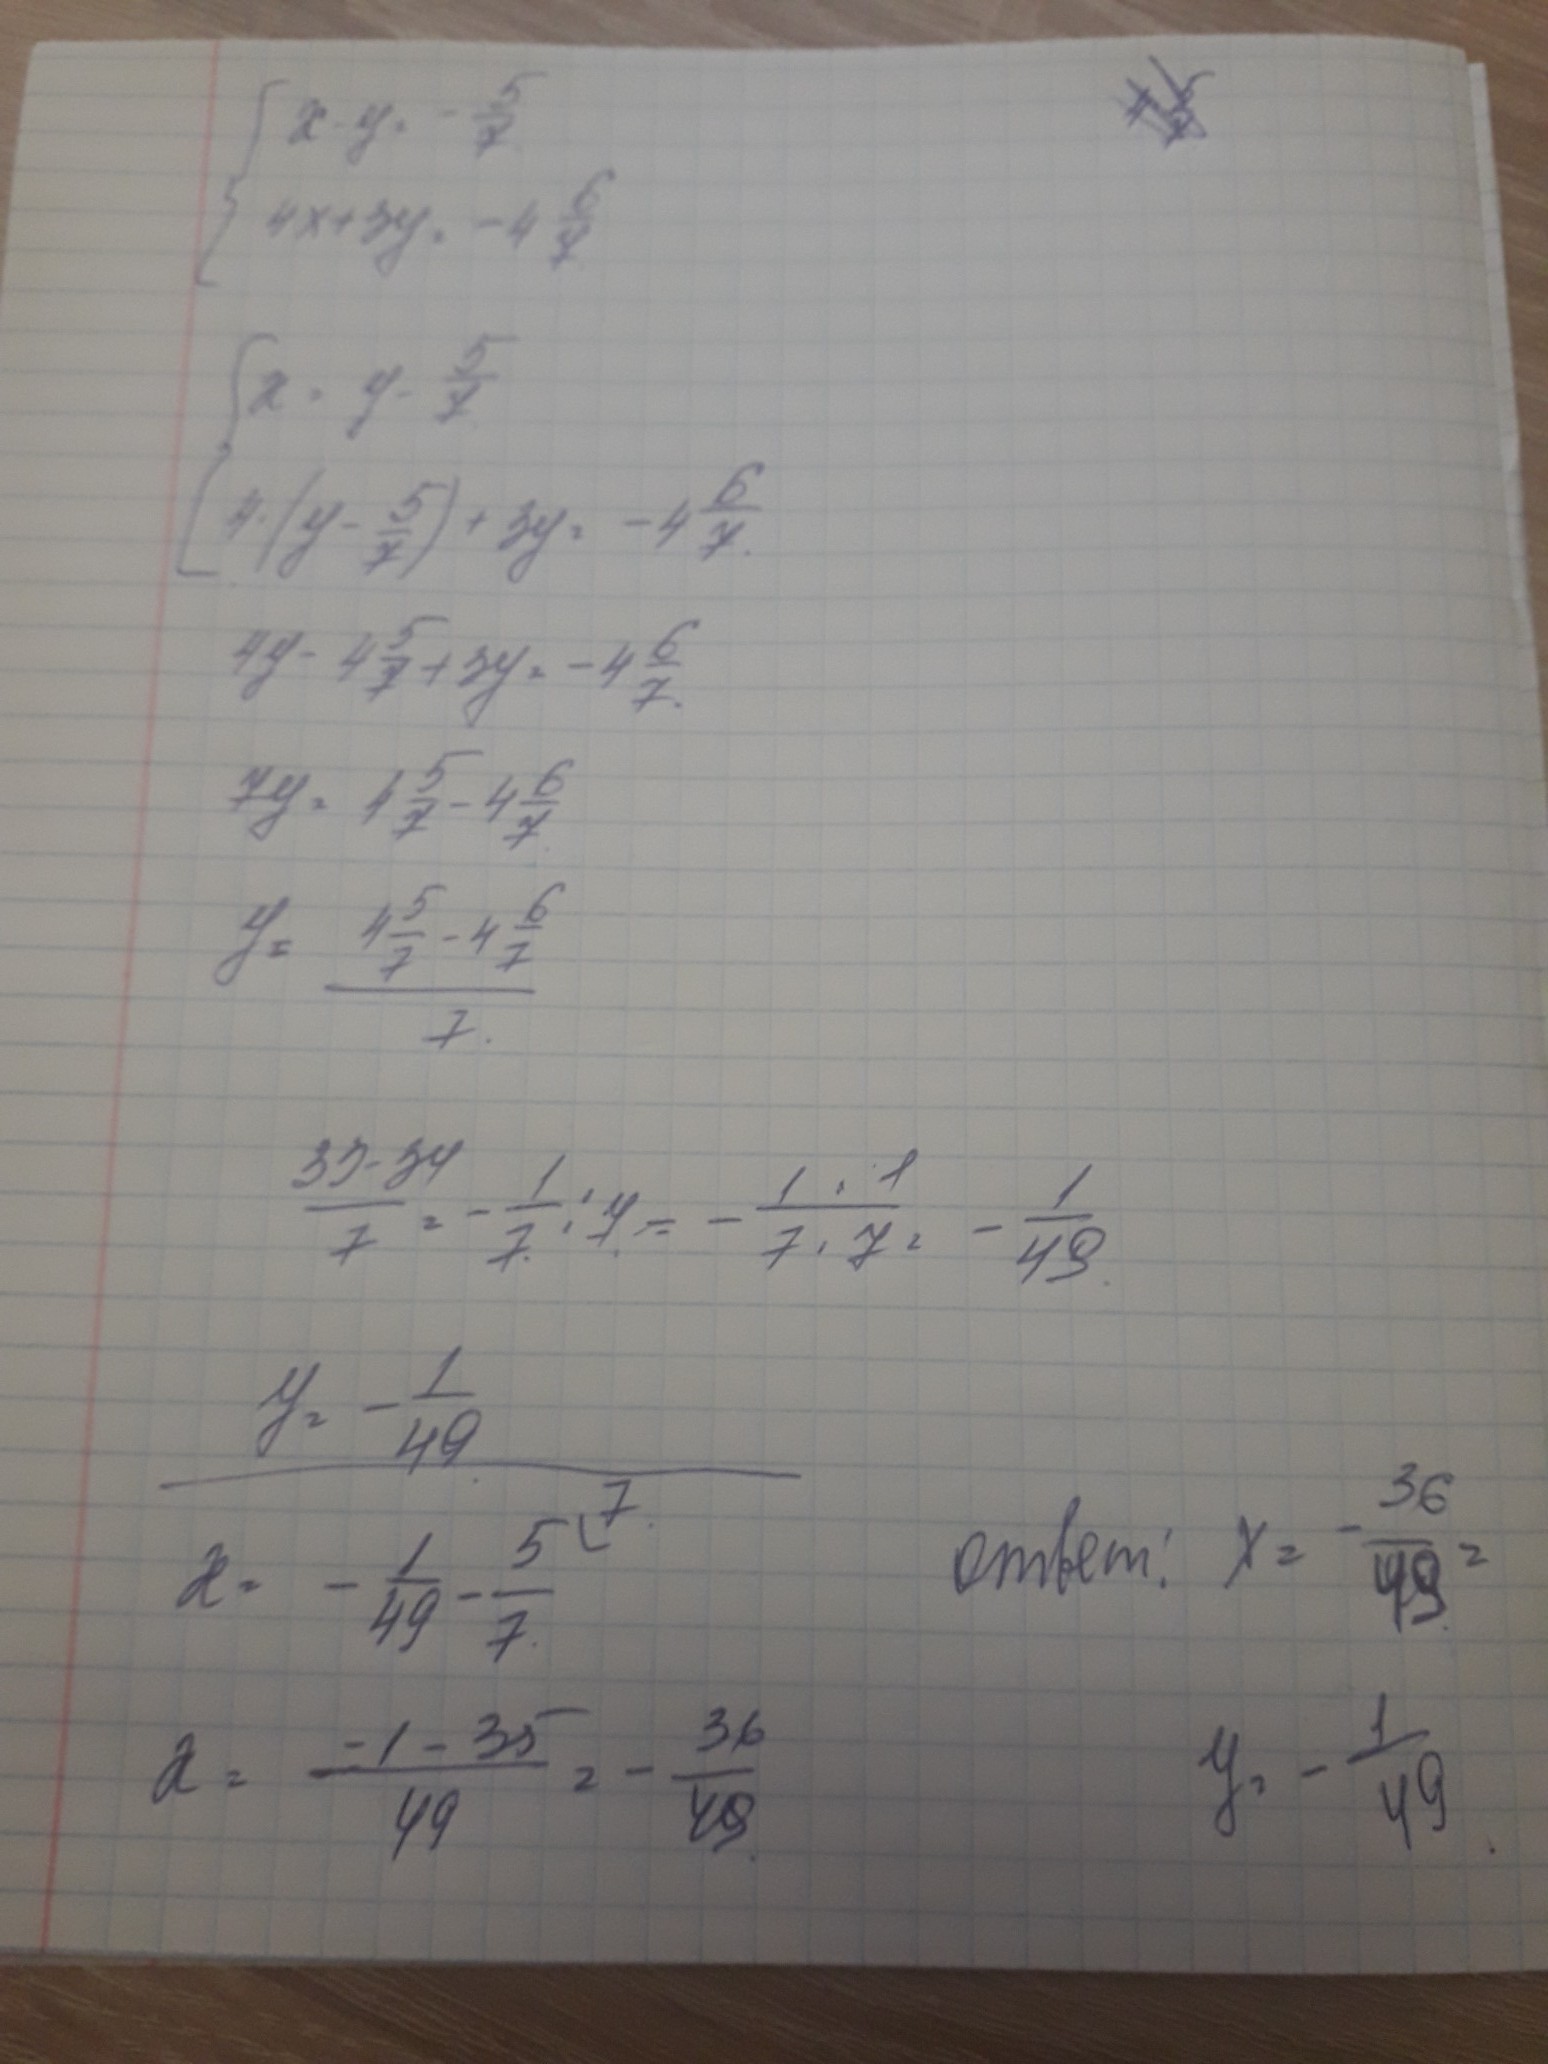 x - y = - 5/7
4x + 3y = - 4 6/7
x = y - 5/7
4 · (y - 5/7) + 3y = - 4 6/7.
4y - 4 5/7 + 3y = - 4 6/7.
7y = 4 5/7 - 4 6/7
y = (4 5/7 - 4 6/7)/7.
(33 - 34)/7 = - 1/7 : 7 = - (1 · 1)/(7 · 7) = - 1/49.
y = - 1/49
x = - 1/49 - 5/7 7.
x = (-1 - 35)/49 = - 36/49.
ответ: x = - 36/49 =
y = - 1/49.